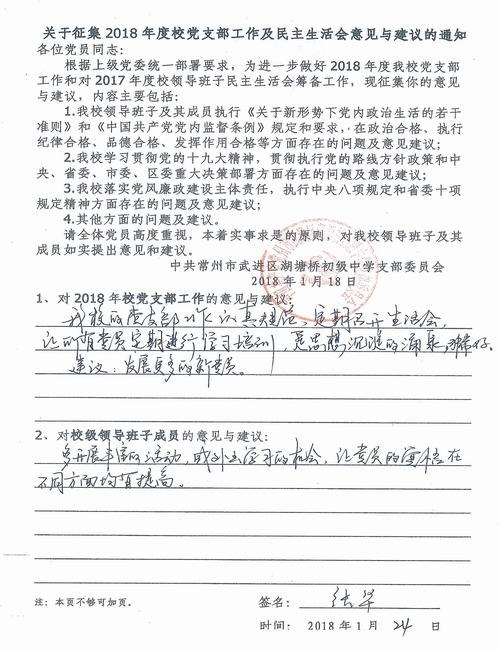 关于征集 2018 年度校党支部工作及民主生活会意见与建议的通知
各位党员同志：
根据上级党委统一部署要求，为进一步做好 2018 年度我校党支部
工作和对 2017 年度校领导班子民主生活会筹备工作，现征集你的意见
与建议，内容主要包括：
1.我校领导班子及其成员执行《关于新形势下党内政治生活的若干
准则》和《中国共产党党内监督条例》规定和要求，在政治合格、执行
纪律合格、品德合格、发挥作用合格等方面存在的问题及意见建议；
2.我校学习贯彻党的十九大精神，贯彻执行党的路线方针政策和中
央、省委、市委、区委重大决策部署方面存在的问题及意见建议；
3.我校落实党风廉政建设主体责任，执行中央八项规定和省委十项
规定精神方面存在的问题及意见建议；
4.其他方面的问题及建议。
请全体党员高度重视，本着实事求是的原则，对我校领导班子及其
成员如实提出意见和建议。
中共常州市武进区湖塘桥初级中学支部委员会
2018 年 1 月 18 日
1、对 2018 年校党支部工作的意见与建议：
我校的党支部工作认真规范，定期召开生活会，
让所有党员定期进行学习培训，
建议：发展更多的新党员。
2、对校级领导班子成员的意见与建议：
多开展丰富的活动，或外出学习的机会，让党员的
不同方面均有提高。
注：本页不够可加页。
签名：张华
时间：2018 年 1 月 24 日